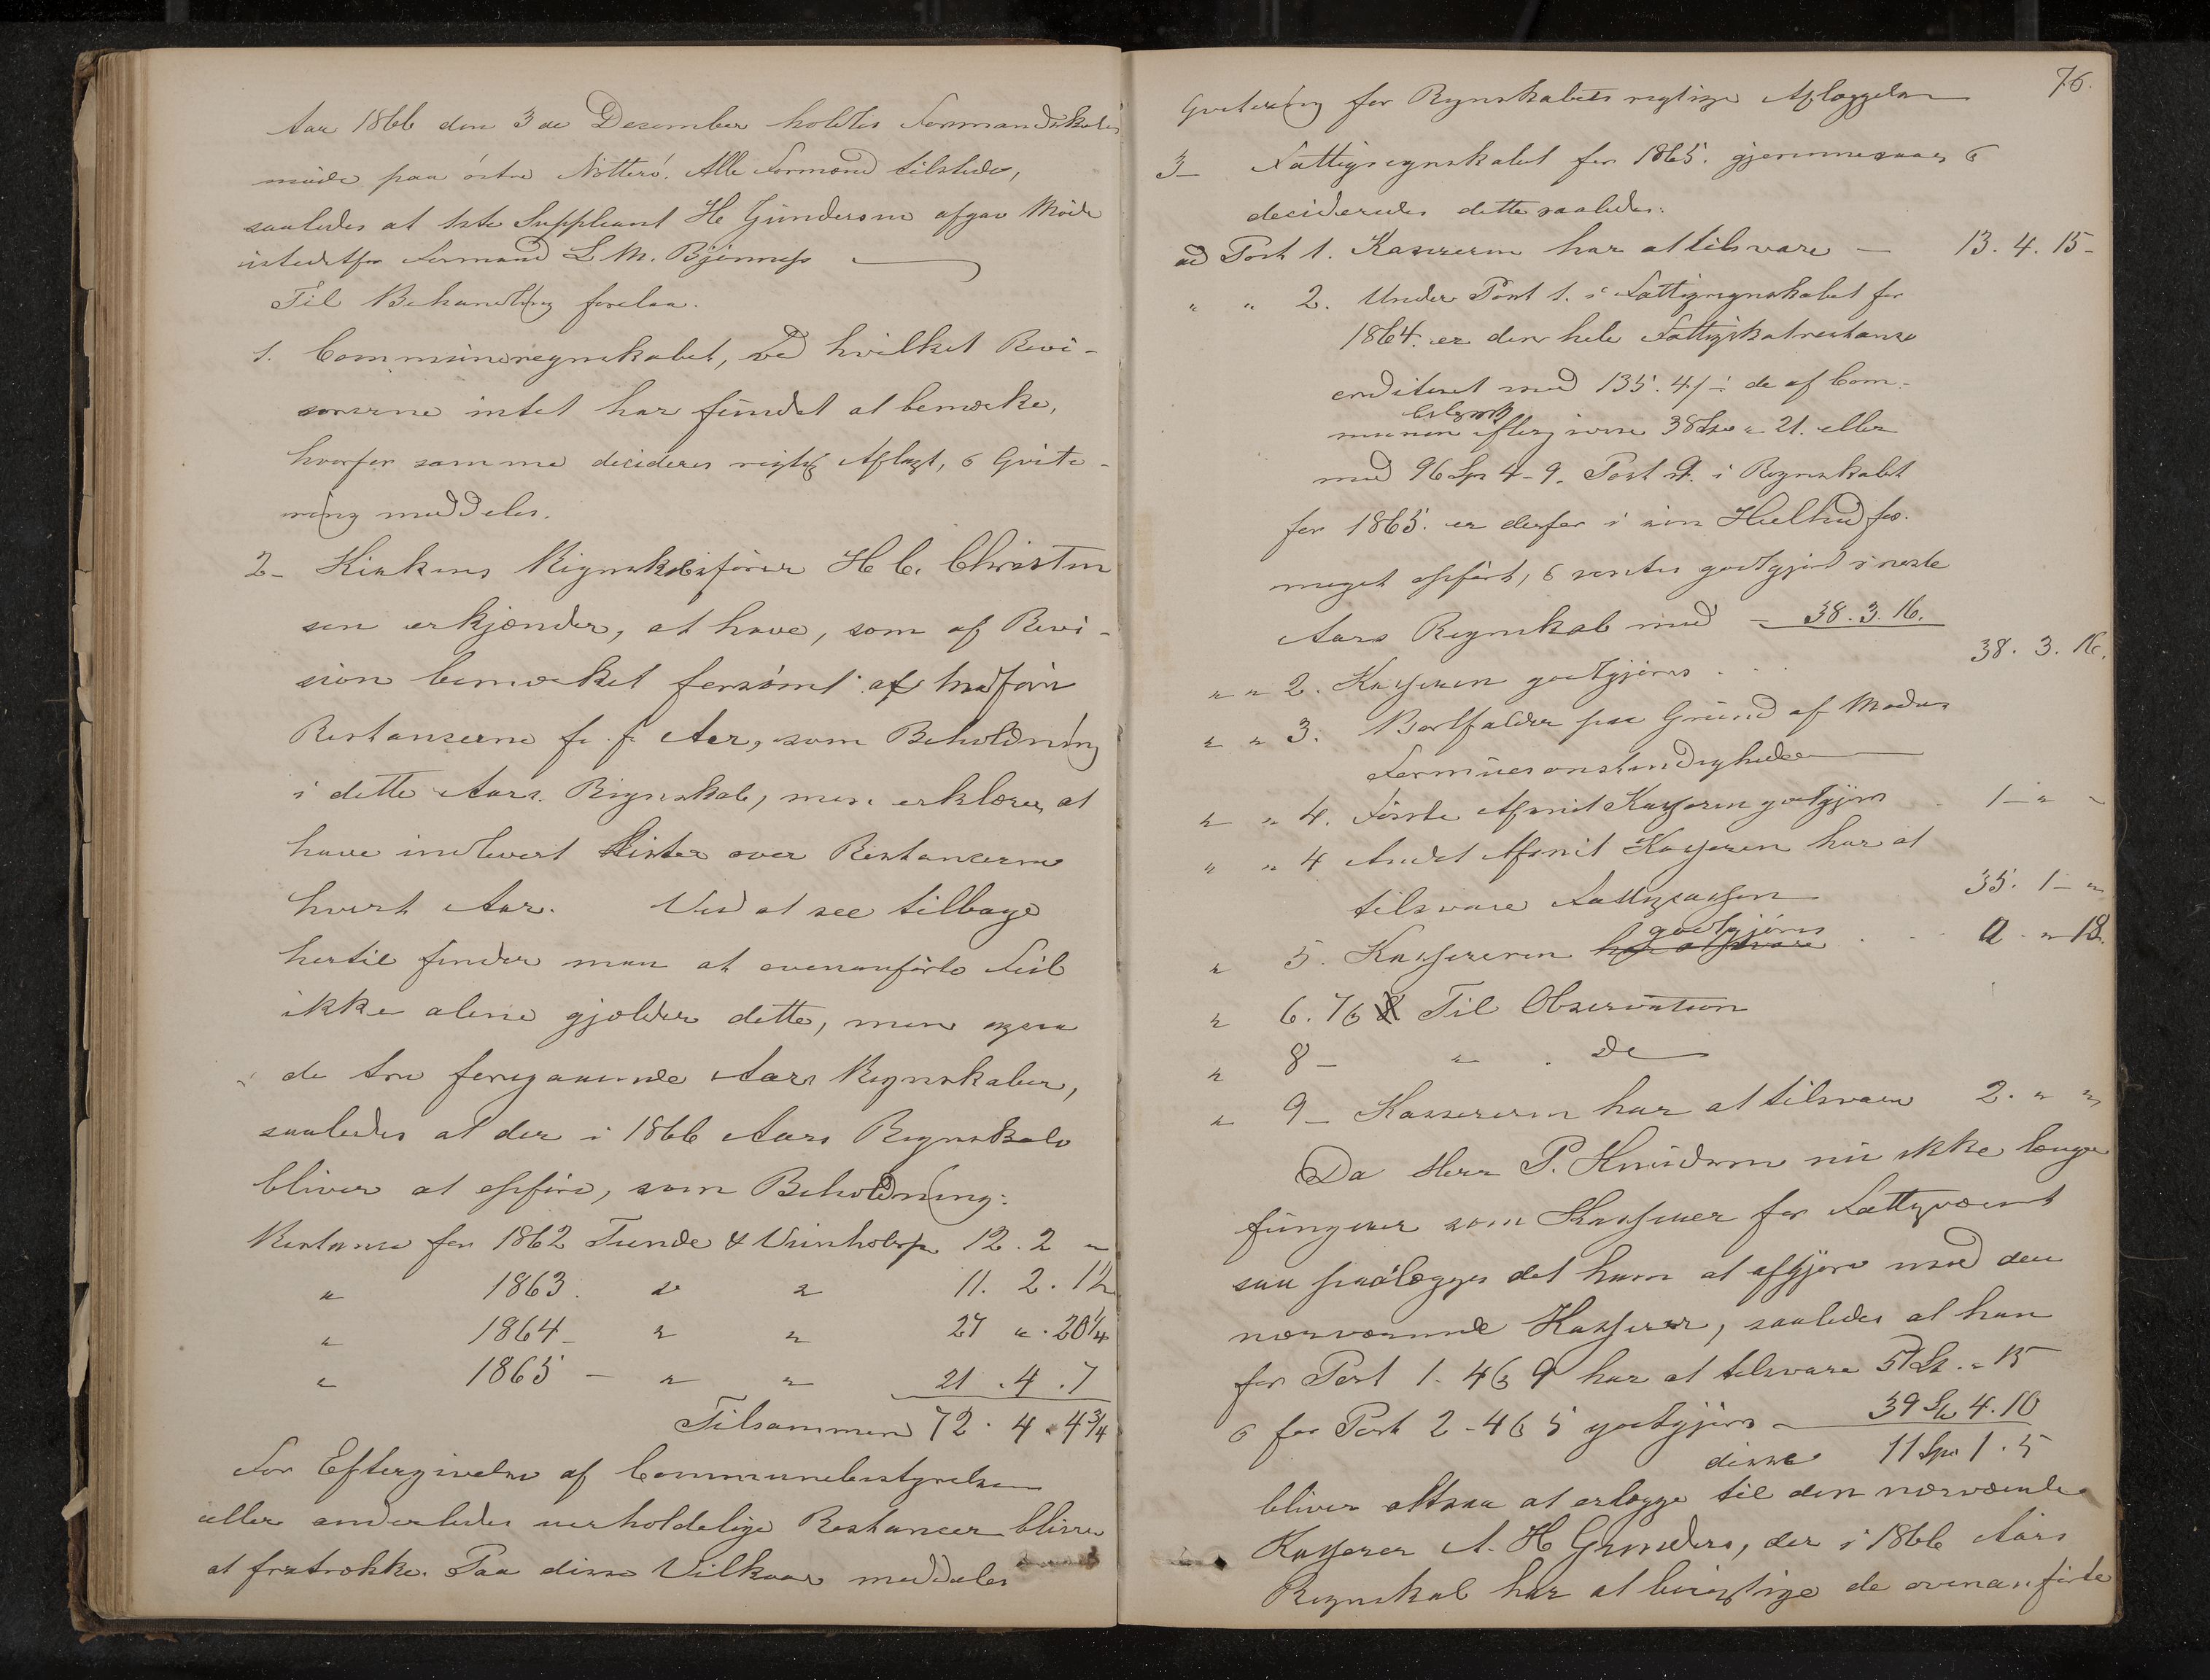 Aar 1866 den 3de Desember holdtes Formandskabs
möde paa östre Nötterö. Alle Formænd tilstede,
saaledes at 1ste Suppleant H Gundersen afgav Möde
istedetfor Formand L. M. Bjönness
Til Behandling forelaa.
1. Communeregnskabet, ved hvilket Revi-
sorerne intet har fundet at bemærke,
hvorfor samme decideres rigtig Aflagt, & Qvite-
ring meddeles.
2- Kirkens Regnskabsförer H C. Christen
sen erkjender, at have, som af Revi-
sion bemærket forsömt at medföre
Restancerne f. f. Aar, som Beholdning
i dette Aars Regnskab, men erklærer at
have indlevert Lister over Restancerne
hvert Aar. Ved at see tilbage
hertil finder man at ovenanförte Feil
ikke alene gjælder dette, men ogsaa
de tre foregaaende Aars Regnskaber,
saaledes at der i 1866 Aars Regnskab
bliver at opföre, som Beholdning:
Restance for 1862 Tiende & 12. 2 "
" 1863. " " 11. 2. 1½
" 1864- " " 27 " . 20¼
" 1865 - " " 21 . 4 . 7
Tilsammen 72. 4. 4¾
For Eftergivelse af Communebestyrelsen
eller anderledes uerholdelige Restancer bliver
at fratrække. Paa disse Vilkaar meddeles
76.
Qvitering for Regnskabets rigtige Aflæggelse
3- Fattigregnskabet for 1865. gjennemsaaes &
decideredes dette saaledes:
ad Post 1. Kassereren har at tilsvare - 13. 4. 15-
" " 2. Under Post 1. i Fattigregnskabet for
1864. er den hele Fattigskatrestance
crediteret med 135. 4 /: de af Com-
munen eftergivne 38 Spd " 21. eller
med 96 Sp 4-9. Post 9. i Regnskabet
for 1865. er derfor i sin Heelhed for
meget opfört, & ventes godtgjort i næste
Aars Regnskab med - 38. 3. 16.
" " 2. Kasseren godtgjöres . . 38. 3. 16.
" " 3. Bortfalder paa Grund af Mødres
Formuesomstændigheder
" " 4. Förste Afsnit Kasseren godtgjöres . 1 - " -
" " 4 Andet Afsnit Kasseren har at
tilsvare Fattigkassen 35. 1 - "
" 5. Kassereren har at tilsvare godtgjöres . . " . " 18.
" 6. 7 & 8 Til Observation
" 8 - " . do
" 9- Kassereren har at tilsvare 2. " "
Da Herr P. Knudsen nu ikke længer
fungerer som Kasserer for Fattigvæsenet
saa paalægges det ham at afgjöre med den
nærværende Kasserer, saaledes at han
for Post 1- 4 & 9 har at tilsvare 51 Sp. " 15
& for Post 2 - 4 & 5 godtgjöres - 39 Sp 4. 10
disse 11 Spd 1. 5
bliver altsaa at erlægge til den nærværende
Kasserer A. H Gunders, der i 1866 Aars
Regnskab har at berigtige de ovenanförte